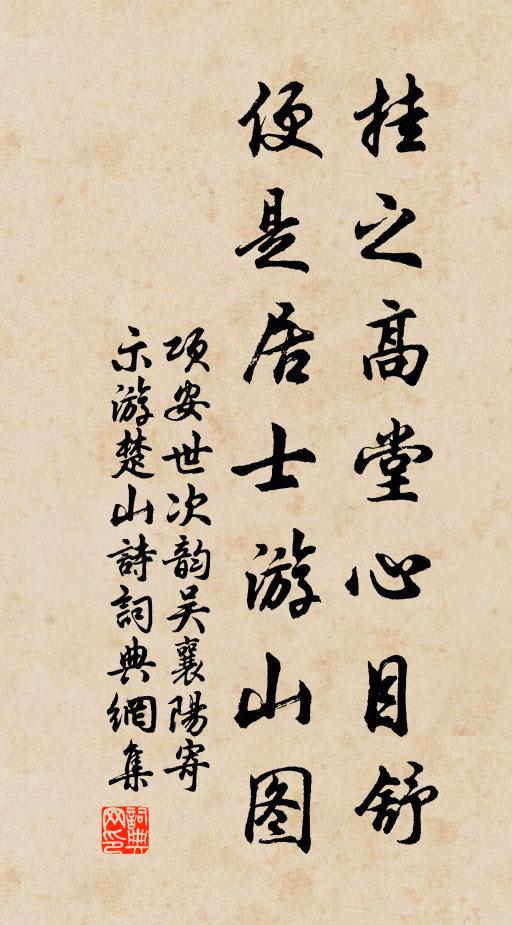 挂之高堂心目舒
便是居士游山图
项安世次韵吴襄陽寄
示游楚山詩詞典網集
詞典網印